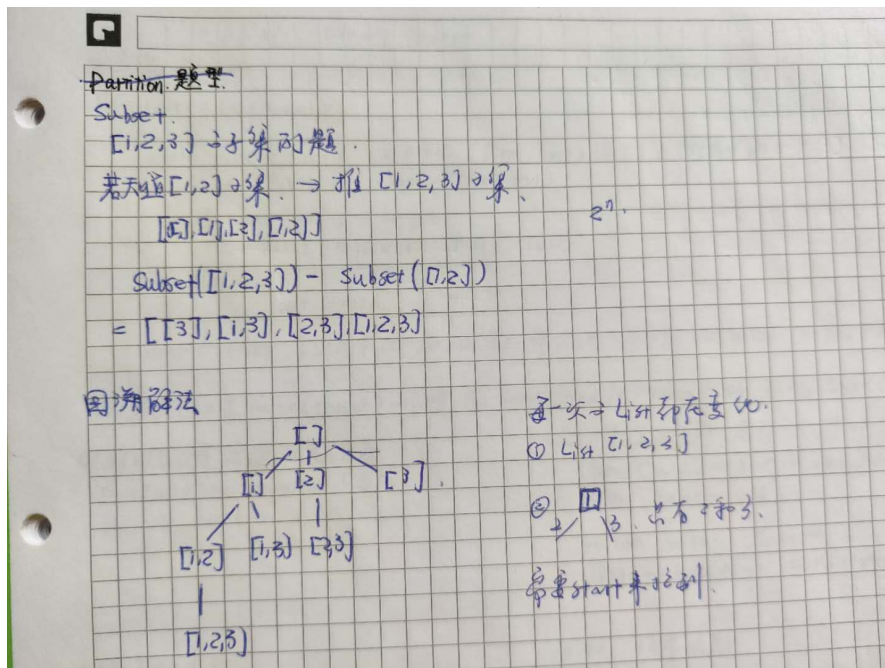 Partition 题型.
Subset.
[1,2,3] 子集问题.
若知道[1,2]子集. → 推 [1,2,3]子集.
[[],[1],[2],[1,2]]
2ⁿ.
Subset([1,2,3]) - Subset([1,2])
= [[3],[1,3],[2,3],[1,2,3]
回溯解法
[]
[1] [2] [3].
[1,2] [1,3] [2,3]
[1,2,3]
每一次 List 都在变化.
① List [1,2,3]
② 1
2 3. 只有2和3.
需要start来控制.